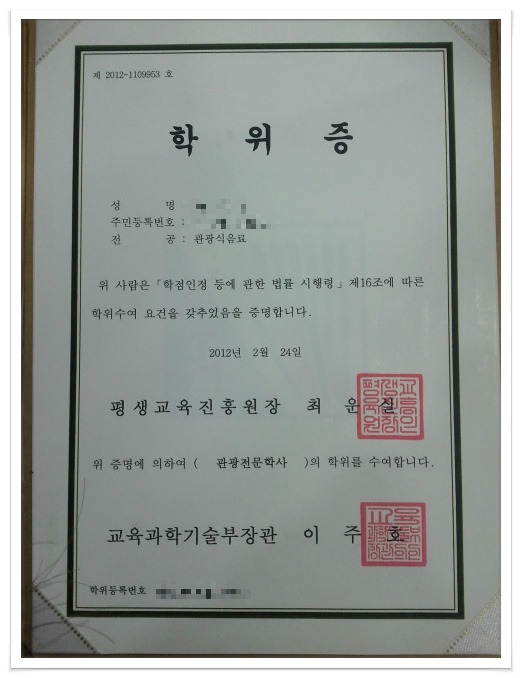 제 2012-1109953 호
학 위 증
성 명
주민등록번호 :
전 공 : 관광식음료
위 사람은「학점인정 등에 관한 법률 시행령」제16조에 따른
학위수여 요건을 갖추었음을 증명합니다.
2012년 2월 24일
평생교육진흥원장 최 운 실
위 증명에 의하여 ( 관광전문학사 )의 학위를 수여합니다.
교육과학기술부장관 이 주 호
학위등록번호